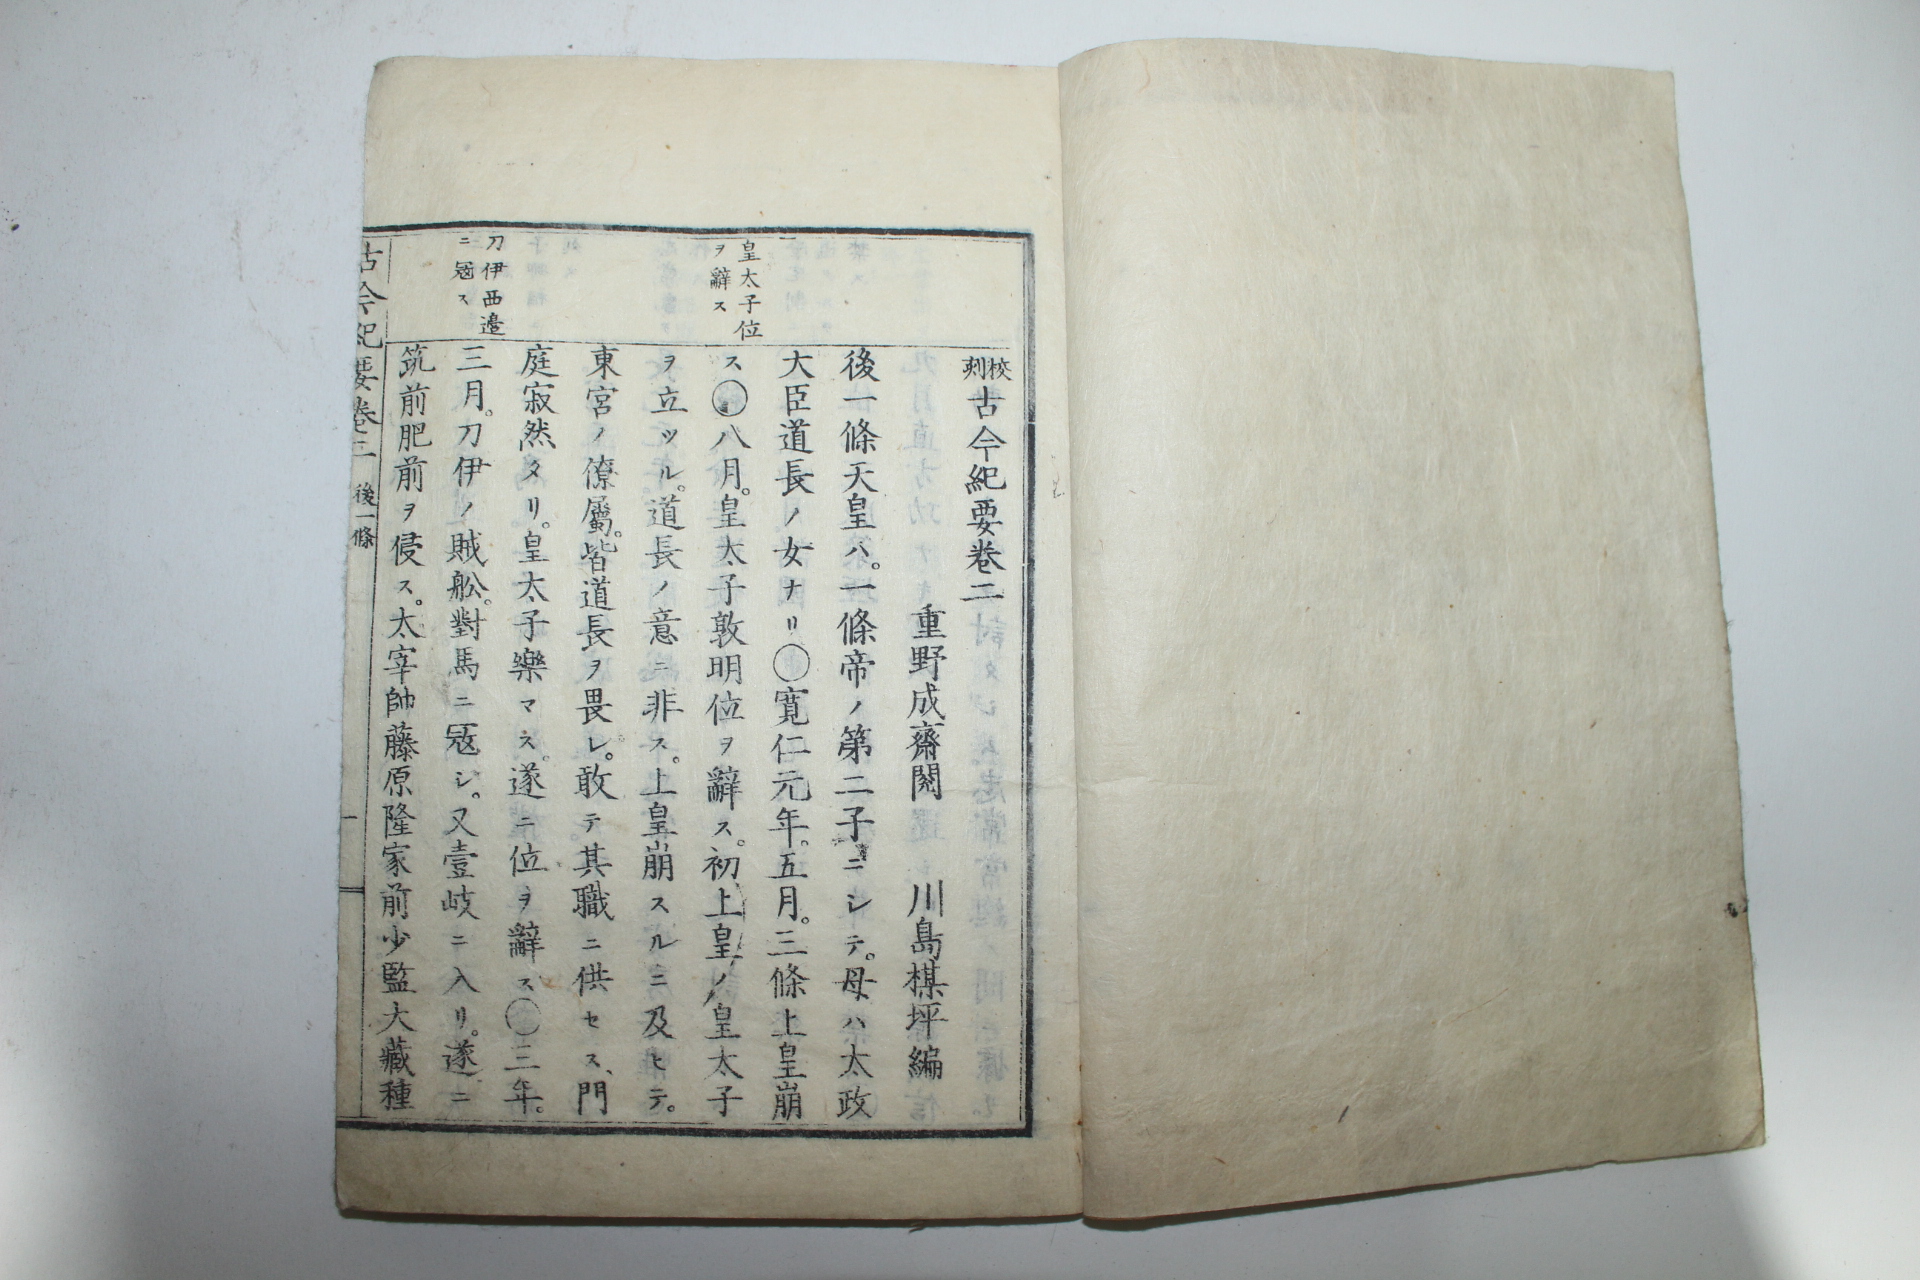 校刻古今紀要卷二
重野成齋閱　川島楳坪編
後一條天皇ハ。一條帝ノ第二子ニシテ。母ハ太政
大臣道長ノ女ナリ○寬仁元年。五月。三條上皇崩
ス○八月。皇太子敦明位ヲ辭ス。初上皇ノ皇太子
ヲ立ツル。道長ノ意ニ非ス。上皇崩スルニ及ヒテ。
東宮ノ僚屬。皆道長ヲ畏レ。敢テ其職ニ供セス、門
庭寂然タリ。皇太子樂マス。遂ニ位ヲ辭ス○三年。
三月。刀伊ノ賊舩。對馬ニ寇シ。又壹岐ニ入リ。遂ニ
筑前肥前ヲ侵ス。太宰帥藤原隆家前少監大藏種
皇太子位
ヲ辭ス
刀伊西邊
ニ寇ス
古今紀要卷二　後一條　一